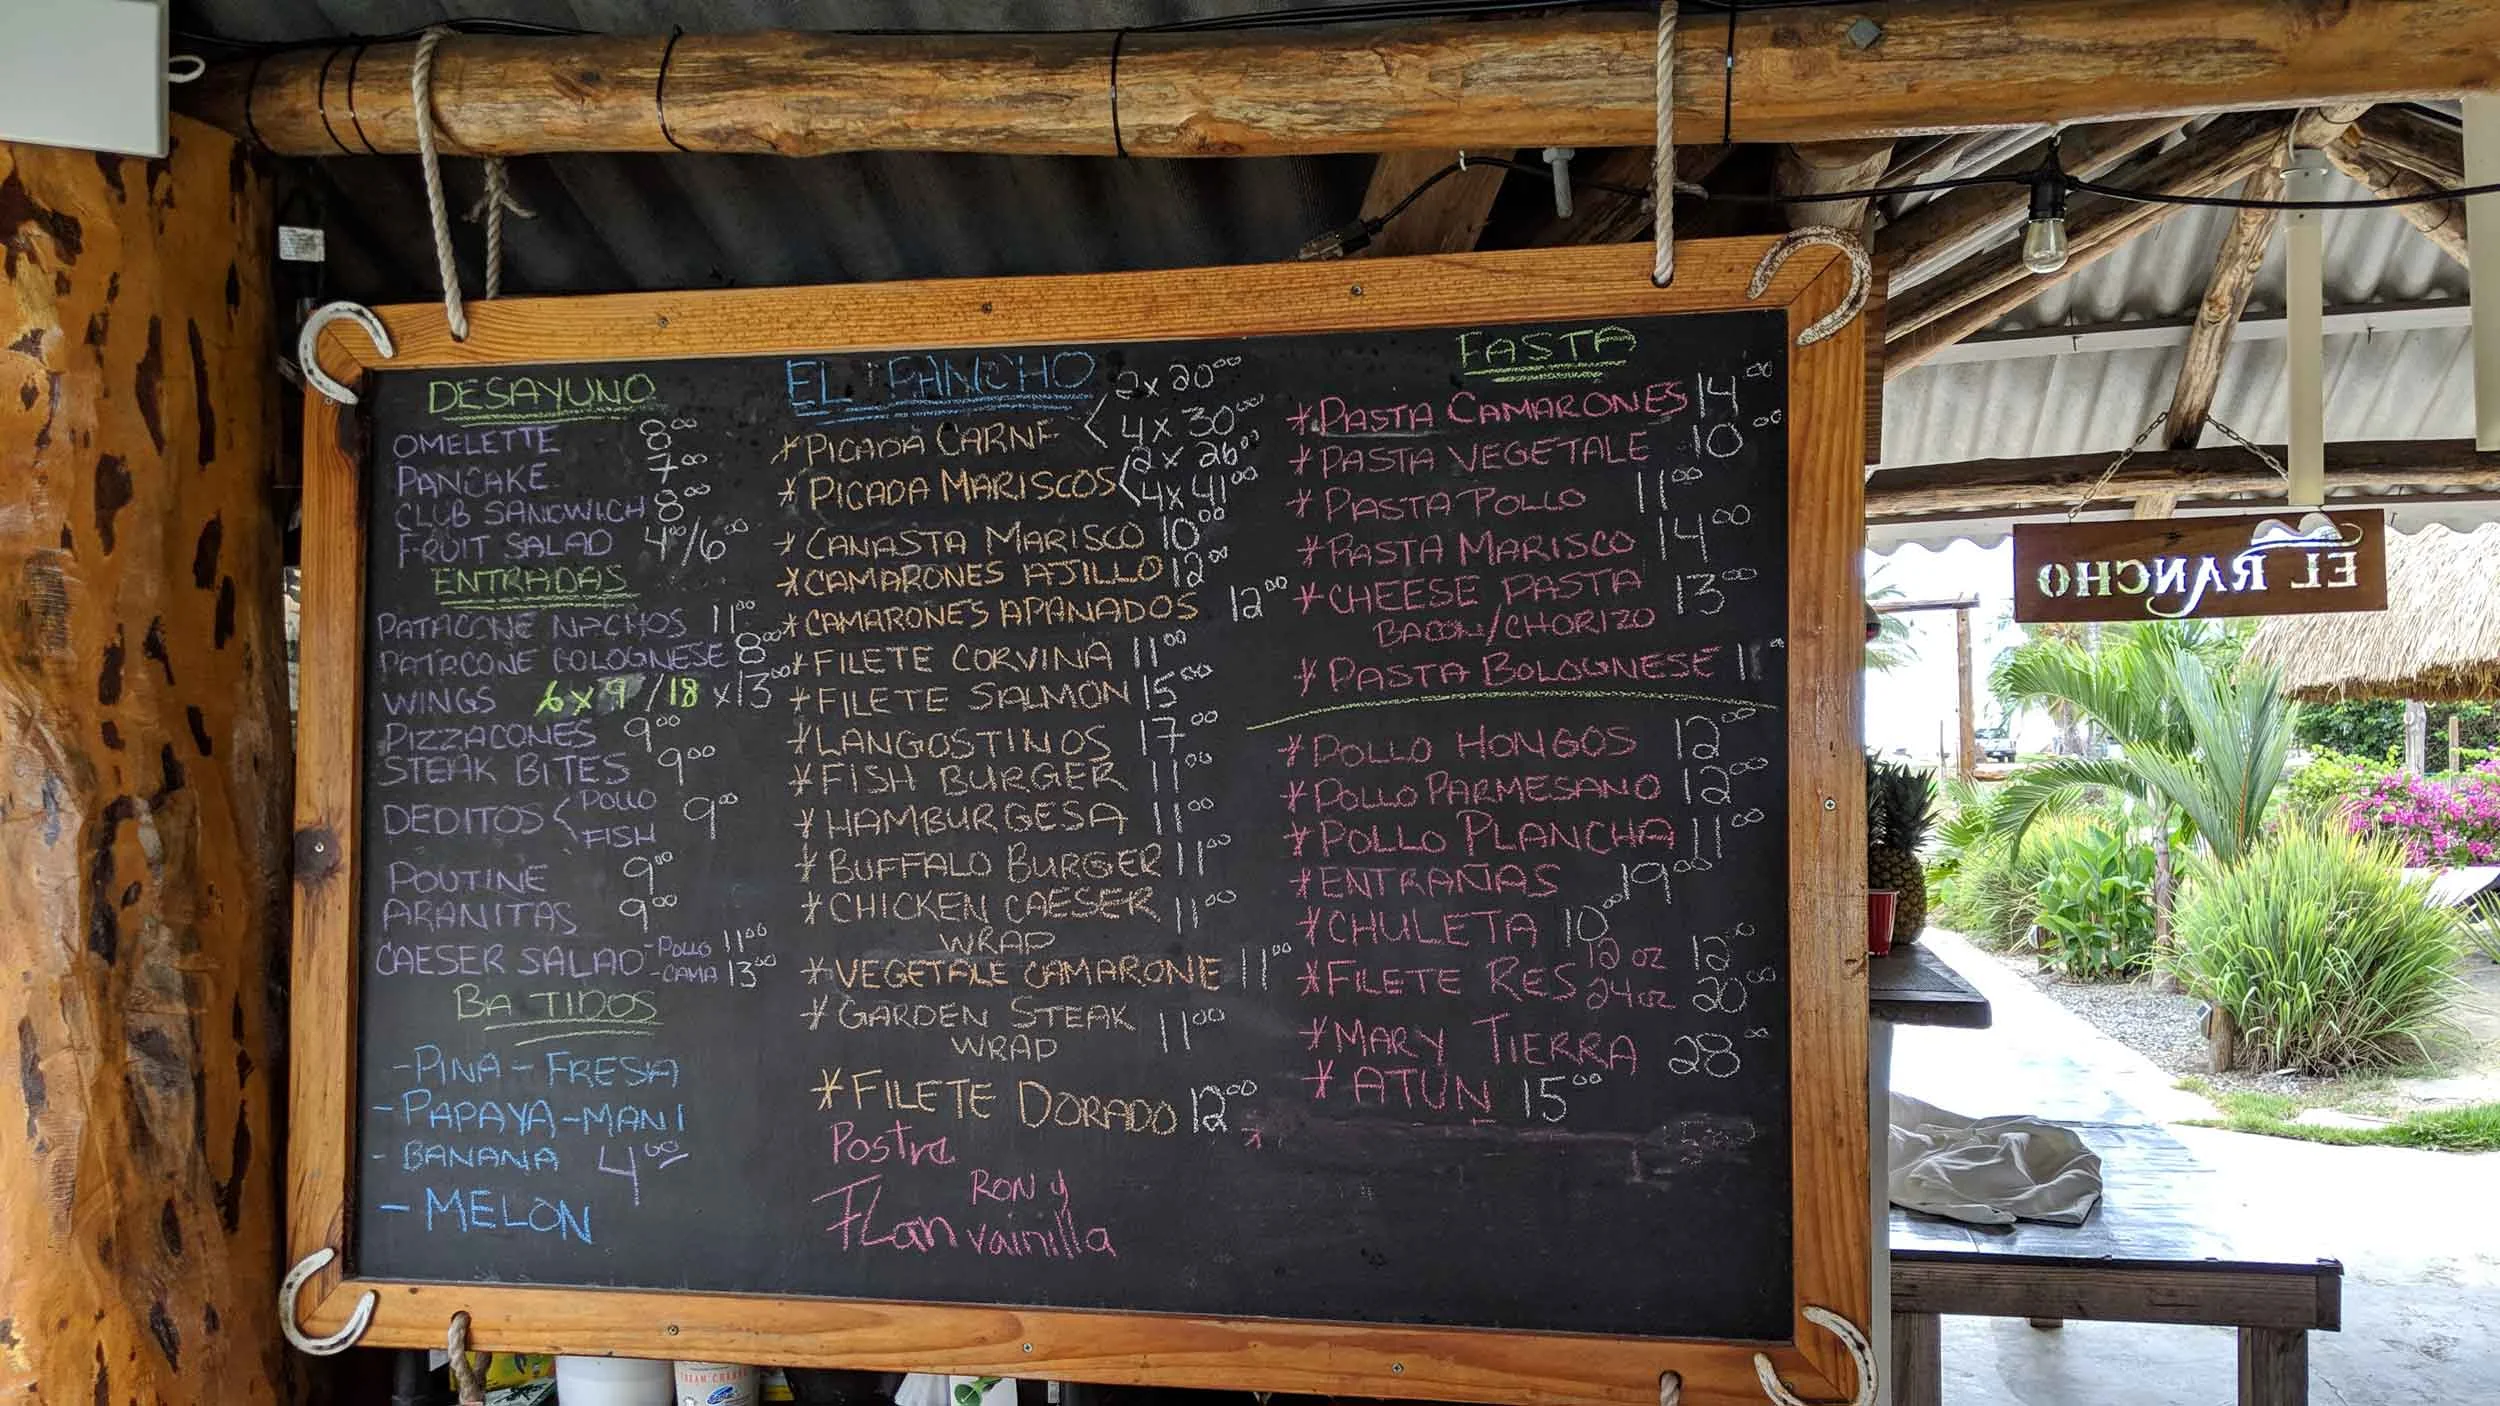 DESAYUNO
OMELETTE 8.00
PANCAKE 7.00
CLUB SANDWICH 8.00
FRUIT SALAD 4.00/6.00
ENTRADAS
PATACONE NACHOS 11.00
PATACONE BOLOGNESE 8.00
WINGS 6x9/18x13.00
PIZZACONES 9.00
STEAK BITES 9.00
DEDITOS < POLLO 9.00
FISH
POUTINE 9.00
ARANITAS 9.00
CAESER SALAD - POLLO 11.00
- CAMA 13.00
BATIDOS
- PINA - FRESA
- PAPAYA - MANI
- BANANA 4.00
- MELON
EL RANCHO
2x20.00
* PICADA CARNE < 4x30.00
2x26.00
* PICADA MARISCOS < 4x41.00
* CANASTA MARISCO 10.00
* CAMARONES AJILLO 12.00
* CAMARONES APANADOS 12.00
* FILETE CORVINA 11.00
* FILETE SALMON 15.00
* LANGOSTINOS 17.00
* FISH BURGER 11.00
* HAMBURGESA 11.00
* BUFFALO BURGER 11.00
* CHICKEN CAESER 11.00
WRAP
* VEGETALE CAMARONE 11.00
* GARDEN STEAK 11.00
WRAP
* FILETE DORADO 12.00
*
Postra
Flan RON y
vainilla
PASTA
* PASTA CAMARONES 14.00
* PASTA VEGETALE 10.00
* PASTA POLLO 11.00
* PASTA MARISCO 14.00
* CHEESE PASTA 13.00
BACON/CHORIZO
* PASTA BOLOGNESE 11
* POLLO HONGOS 12.00
* POLLO PARMESANO 12.00
* POLLO PLANCHA 11.00
* ENTRAÑAS 19.00
* CHULETA 10.00
* FILETE RES 12 oz 12.00
24 oz 20.00
* MAR Y TIERRA 28.00
* ATUN 15.00
EL RANCHO